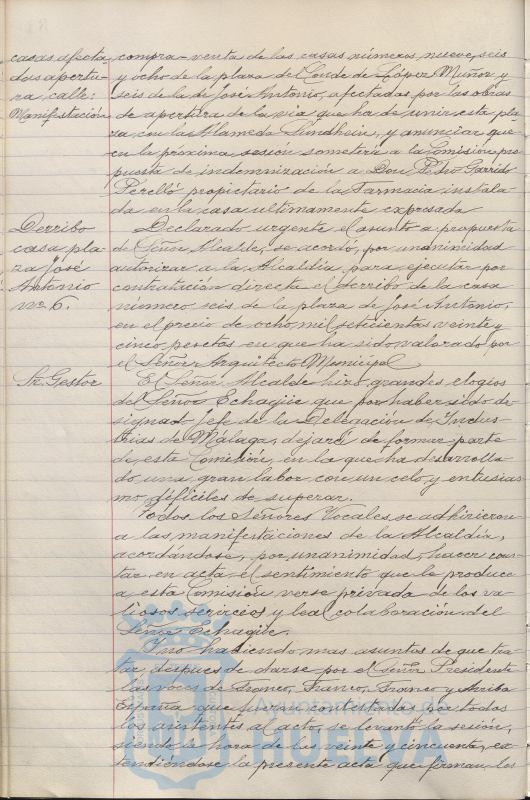 casas afecta-
das apertu-
ra calle:
Manifestación
compra-venta de las casas números nueve, seis
y ocho de la plaza del Conde de López Muñoz y
seis de la de José Antonio, afectadas por las obras
de apertura de la vía que ha de unir esta pla-
za con la Alameda Sundhein, y anunciar que
en la próxima sesión someterá a la Comisión pro-
puesta de indemnización a Don Pedro Garrido
Perelló propietario de la Farmacia instala-
da en la casa ultimamente expresada
Derribo
casa pla-
za José
Antonio
nº 6.
Declarado urgente el asunto a propuesta
del Señor Alcalde, se acordó, por unanimidad
autorizar a la Alcaldía para ejecutar por
contratación directa el derribo de la casa
número seis de la plaza de José Antonio,
en el precio de ocho mil setecientas veinte y
cinco pesetas en que ha sido valorado por
el Señor Arquitecto Municipal
Sr. Gestor
El Señor Alcalde hizo grandes elogios
del Señor Echagüe que por haber sido de-
signado Jefe de la Delegación de Indus-
trias de Málaga, dejará de formar parte
de esta Comisión, en la que ha desarrolla-
do una gran labor con un celo y entusias-
mo difíciles de superar.
Todos los Señores Vocales se adhirieron
a las manifestaciones de la Alcaldía,
acordándose, por unanimidad, hacer cons-
tar en acta el sentimiento que le produce
a esta Comisión verse privada de los va-
liosos servicios y leal colaboración del
Señor Echagüe.
Y no habiendo mas asuntos de que tra-
tar, después de darse por el Señor Presidente
las voces de Franco, Franco, Franco y Arriba
España que fueron contestadas por todos
los asistentes al acto, se levantó la sesión,
siendo la hora de las veinte y cincuenta, ex-
tendiéndose la presente acta que firman los
Ayuntamiento de
HUELVA